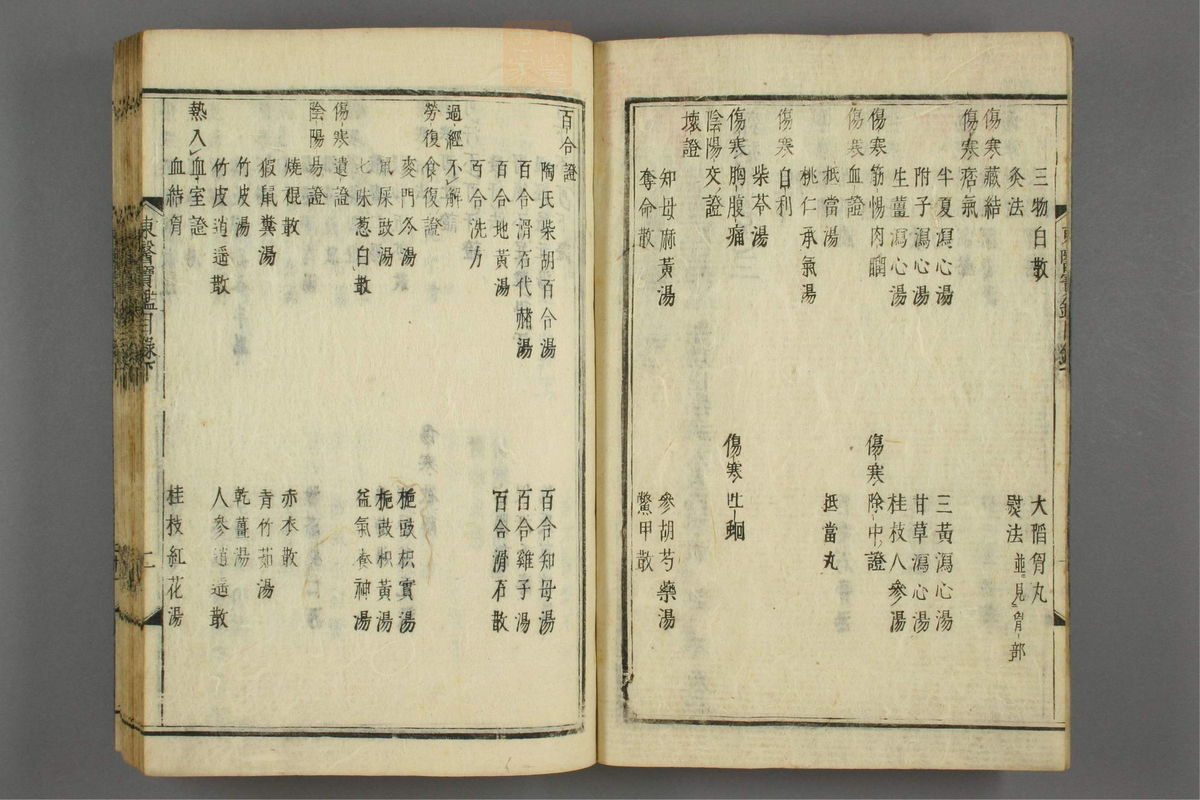 三物白散　大䧟胷丸
灸法　熨法並見胷部
傷寒藏結
傷寒痞氣
半夏瀉心湯　三黃瀉心湯
附子瀉心湯　甘草瀉心湯
生薑瀉心湯　桂枝人參湯
傷寒筋惕肉瞤　傷寒除中證
傷寒血證
抵當湯　抵當丸
桃仁承氣湯
傷寒自利
柴苓湯
傷寒胸腹痛　傷寒吐蛔
陰陽交證
壞證
知母麻黃湯　參胡芍藥湯
奪命散　鱉甲散
百合證
陶氏柴胡百合湯　百合知母湯
百合滑石代赭湯　百合雞子湯
百合地黃湯　百合滑石散
百合洗方
過經不解
勞復食復證
麥門冬湯　梔豉枳實湯
鼠屎豉湯　梔豉枳黃湯
七味葱白散　益氣養神湯
傷寒遺證
陰陽易證
燒裩散　赤衣散
猳鼠糞湯　青竹茹湯
竹皮湯　乾薑湯
竹皮逍遥散　人參逍遥散
熱入血室證
血結胷　桂枝紅花湯
東醫寶鑑目録下